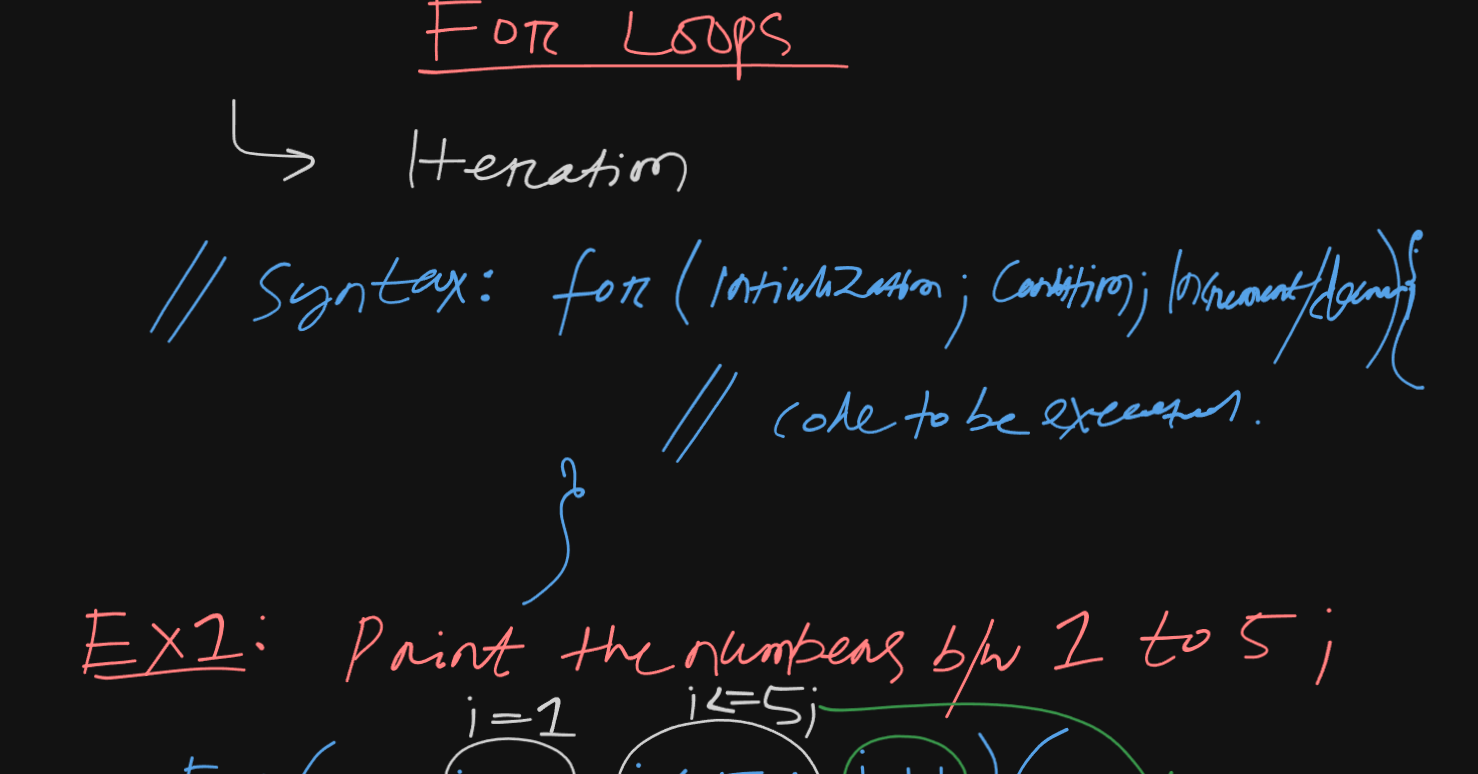 For Loops
Iteration
// Syntax: for (Intialization; Condition; Increment/decrement) {
// code to be executed.
}
Ex1: Print the numbers b/w 1 to 5;
i=1 i<=5;